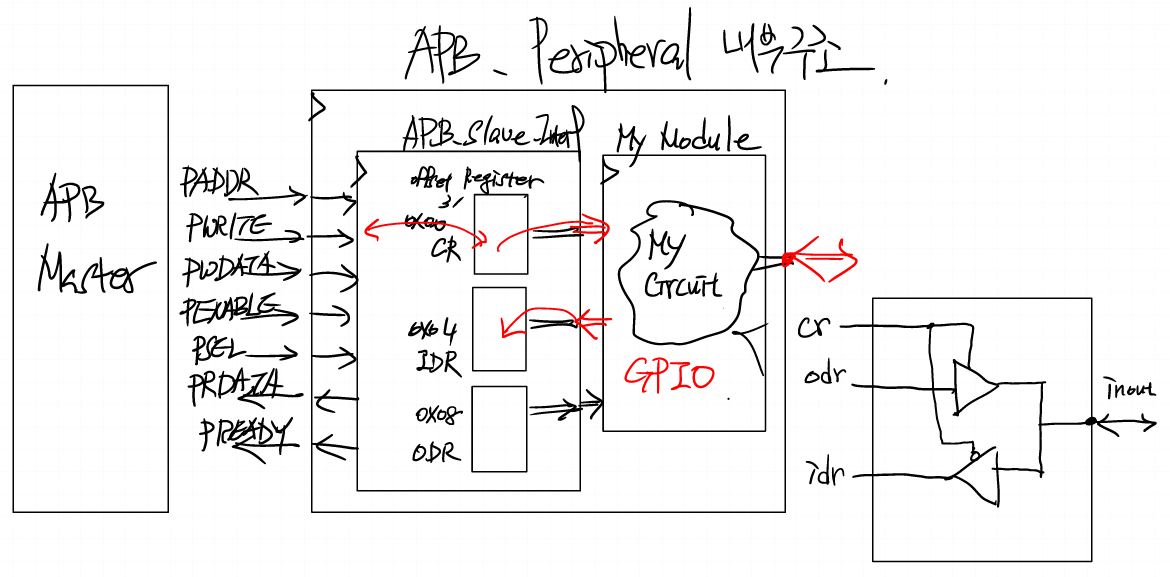 APB_Peripheral 내부구조.
APB Master
PADDR
PWRITE
PWDATA
PENABLE
PSEL
PRDATA
PREADY
APB_Slave_Intf
offset Register
0x00
CR
0x04
IDR
0x08
ODR
My Module
MY
Circuit
GPIO
cr
odr
idr
inout